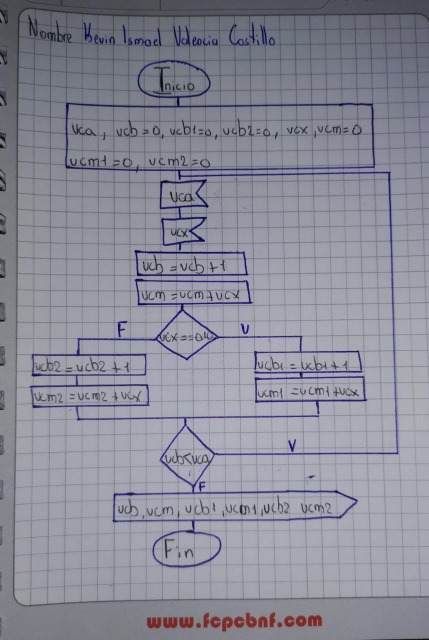 Nombre Kevin Ismael Valencia Castillo
Inicio
vca, vcb=0, vcb1=0, vcb2=0, vcx, vcm=0
vcm1=0, vcm2=0
vca
vcx
vcb = vcb+1
vcm = vcm+vcx
F
V
vcb2 = vcb2+1
vcb1 = vcb1+1
vcm2 = vcm2+vcx
vcm1 = vcm1+vcx
vcb<vca
V
F
vcb, vcm, vcb1, vcm1, vcb2 vcm2
Fin
www.fcpcbnf.com